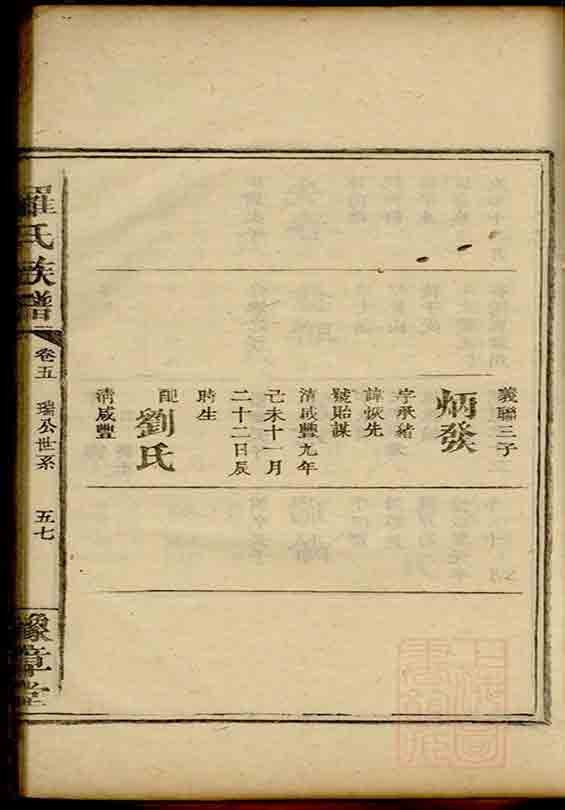 義聯三子
炳發
字承緒
諱恢先
號貽謀
清咸豐九年
己未十一月
二十二日辰
時生
配劉氏
清咸豐
羅氏族譜
卷五
瑞公世系
五七
豫章堂